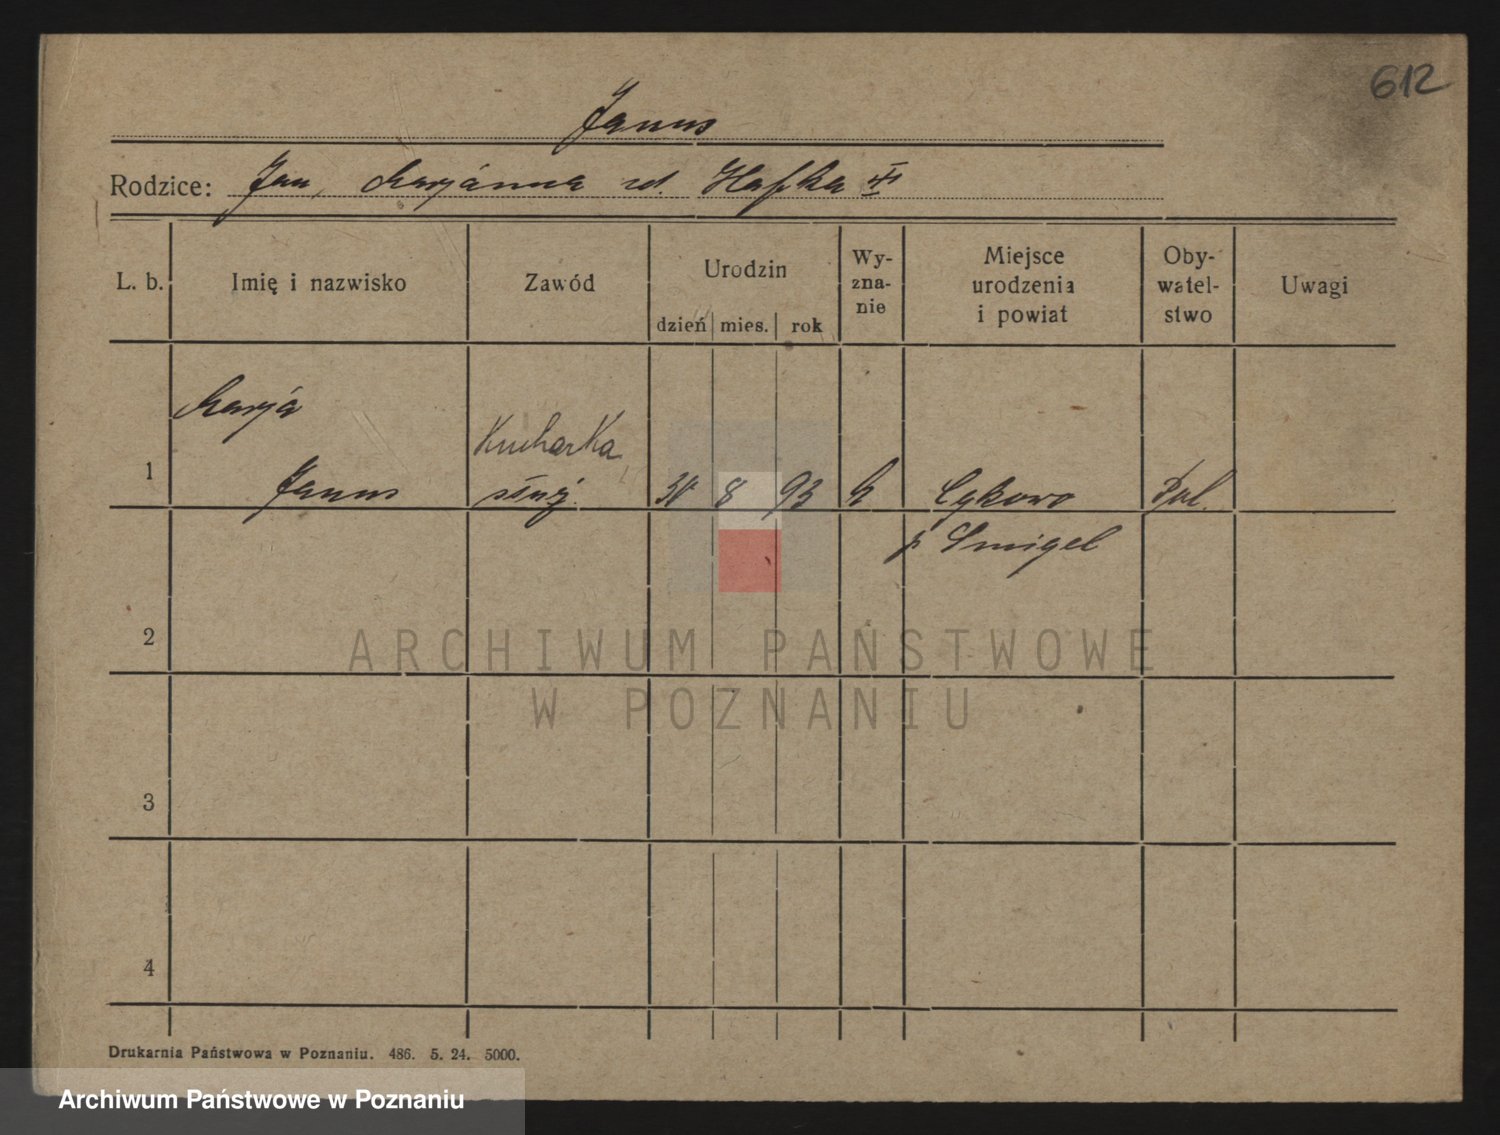 612
Janus
Rodzice: Jan, Marjánna zd. Hafka
L. b. Imię i nazwisko Zawód Urodzin dzień mies. rok Wy-zna-nie Miejsce urodzenia i powiat Oby-watel-stwo Uwagi
Marja
Kucharka
1 Janus służ. 30 8 93 k Cykowo Pol.
p Smigel
2
ARCHIWUM PAŃSTWOWE
W POZNANIU
3
4
Drukarnia Państwowa w Poznaniu. 486. 5. 24. 5000.
Archiwum Państwowe w Poznaniu